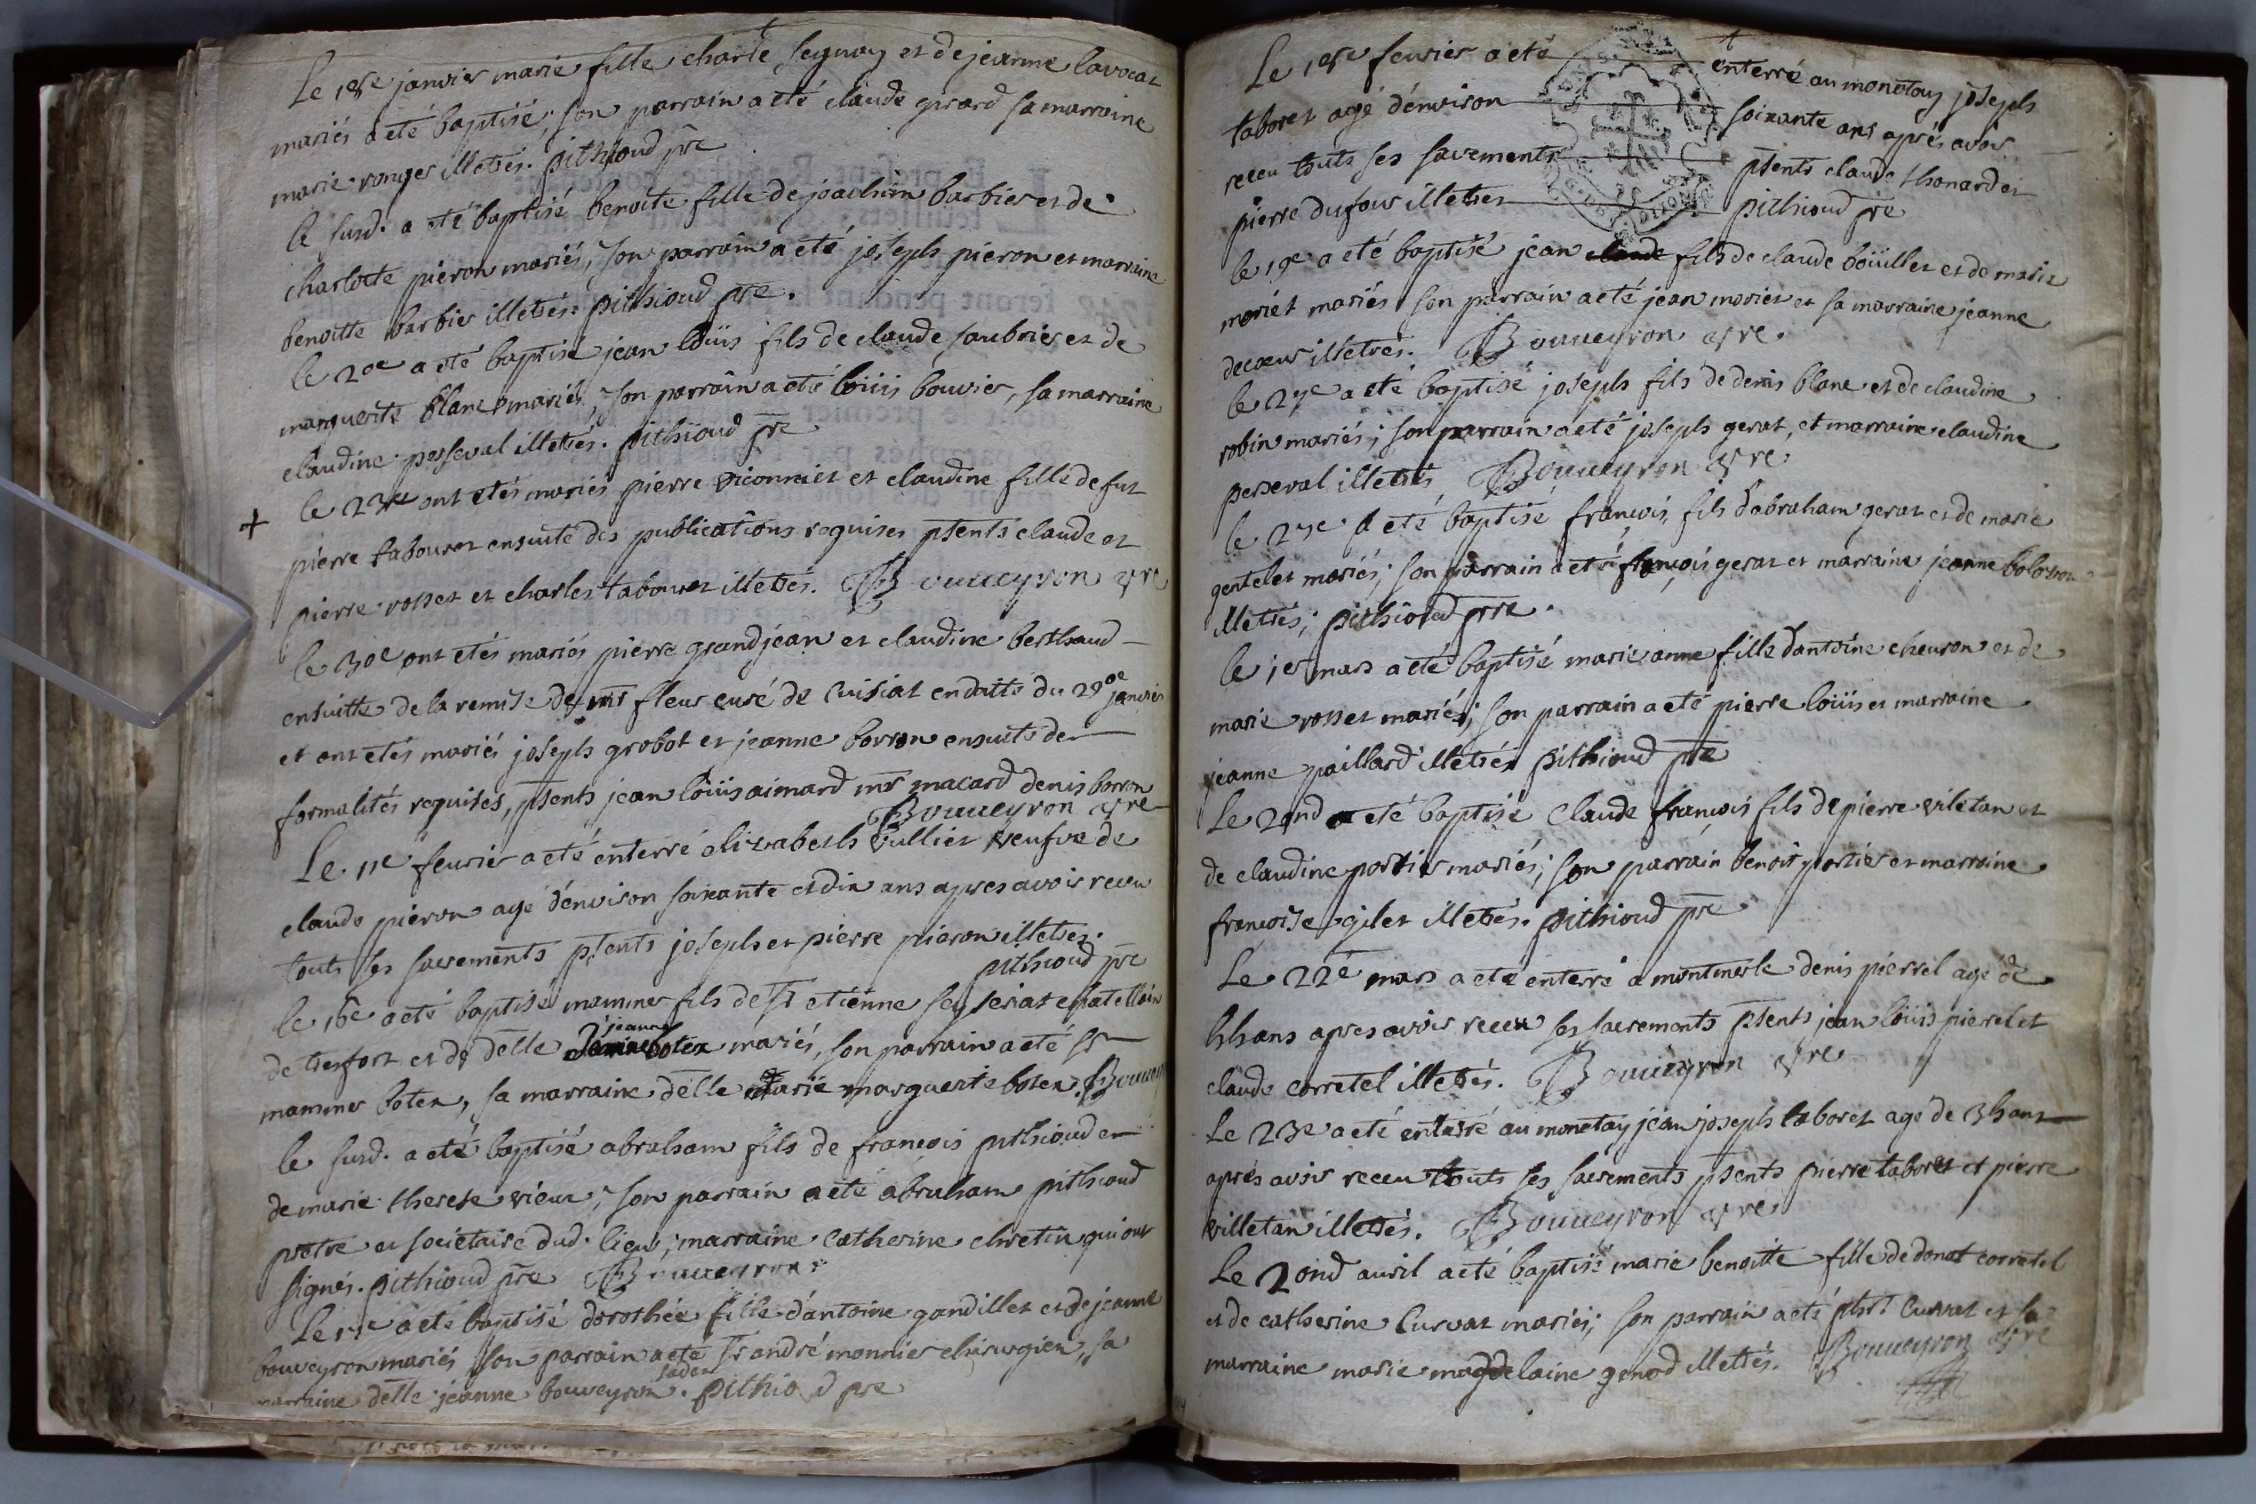 Le 18e janvier marie fille charle seynay et de jeanne lavocat
mariés a eté baptisé, son parrain a eté claude girard sa marraine
marie ronger illetrés. pithioud pre
le susd. a eté baptisé benoite fille de joachim barbier et de
charlotte piéron mariés, son parrain a eté joseph pieron et marraine
benoitte barbier illetrés. pithioud pre.
le 20e a eté baptisé jean loüis fils de claude saubrier et de
marguerite blanc mariés, son parrain a eté loüis bouvier, sa marraine
claudine perseval illetrés. pithioud pre
+ le 23e ont etés mariés pierre viconnier et claudine fille de fut
pierre tabouret ensuite des publications requises ptents claude et
pierre rosset et charles tabouret illetrés. Bouueyron pre
le 30e ont etés mariés pierre grandjean et claudine berthaud
ensuitte de la remise de mr fleur curé de Cuisiat en datte du 29e janvier
et ont etés mariés joseph grobot et jeanne borron ensuite des
formalités requises, ptents jean loüis aimard mr macard denis borron
Bouueyron pre
Le 11e feurier a eté enterré elizabeth vullier veufve de
claude piéron agé d'environ soixante et dix ans apres avoir receu
touts ses sacrements ptents joseph et pierre piéron illetrés.
pithioud pre
le 16e a eté baptisé mammes fils de Sr etiénne seyseriat chatellain
de treffort et de delle jeanne botex mariés, son parrain a eté Sr
mammes botex, sa marraine delle marie marguerite botex. Bouuey
le susd. a eté baptisé abraham fils de françois pithioud et
de marie therese vieux, son parrain a eté abraham pithioud
pretre et societaire dud. lieu; marraine catherine chretin qui ont
signés. pithioud pre Bouueyron
Le 17e a eté baptisé dorothée fille d'antoine gandillet et de jeanne
bouveyron mariés son parrain a eté Sr andré monnier chirurgien, sa
marraine delle jeanne bouveyron. pithioud pre
Le 18e feurier a eté enterré au monetay joseph
taboret agé d'environ soixante ans aprés avoir
receu touts ses sacrements ptents claude thonard et
pierre dufour illetrés pithioud pre
le 19e a eté baptisé jean fils de claude boüillet et de marie
moriét mariés son parrain a eté jean moriet et sa marraine jeanne
decoeur illetrés. Bouueyron pre.
le 27e a eté baptisé joseph fils de denis blanc et de claudine
robin mariés; son parrain a eté joseph gerat, et marraine claudine
perseval illetrés Bouueyron pre
le 27e a eté baptisé françois, fils d'abraham gerat et de marie
gentelet mariés; son parrain a eté françois gerat et marraine jeanne
illetrés; pithioud pre.
le 1er mars a eté baptisé marie anne fille d'antoine cheuron et de
marie rosset mariés; son parrain a eté pierre loüis et marraine
jeanne paillard illetrés pithioud pre
Le 2ond a eté baptisé Claude françois fils de pierre viletan et
de claudine portier mariés; son parrain benoit portier et marraine
françoise gilet illetrés. pithioud pre
Le 22e mars a eté enterré a montmerle denis pierrel agé de
44 ans apres avoir receu ses sacrements ptents jean loüis pierel et
claude corretel illetrés. Bouueyron pre
Le 23e a eté enterré au monetay jean joseph taboret agé de 34 ans
aprés avoir receu touts ses sacrements ptents pierre taboret et pierre
villetan illetrés. Bouueyron pre
Le 2ond auril a eté baptisé marie benoitte fille de donat corretel
et de catherine Curvat mariés; son parrain a eté Curvat et sa
marraine marie magdelaine genod illettrés. Bouueyron pre